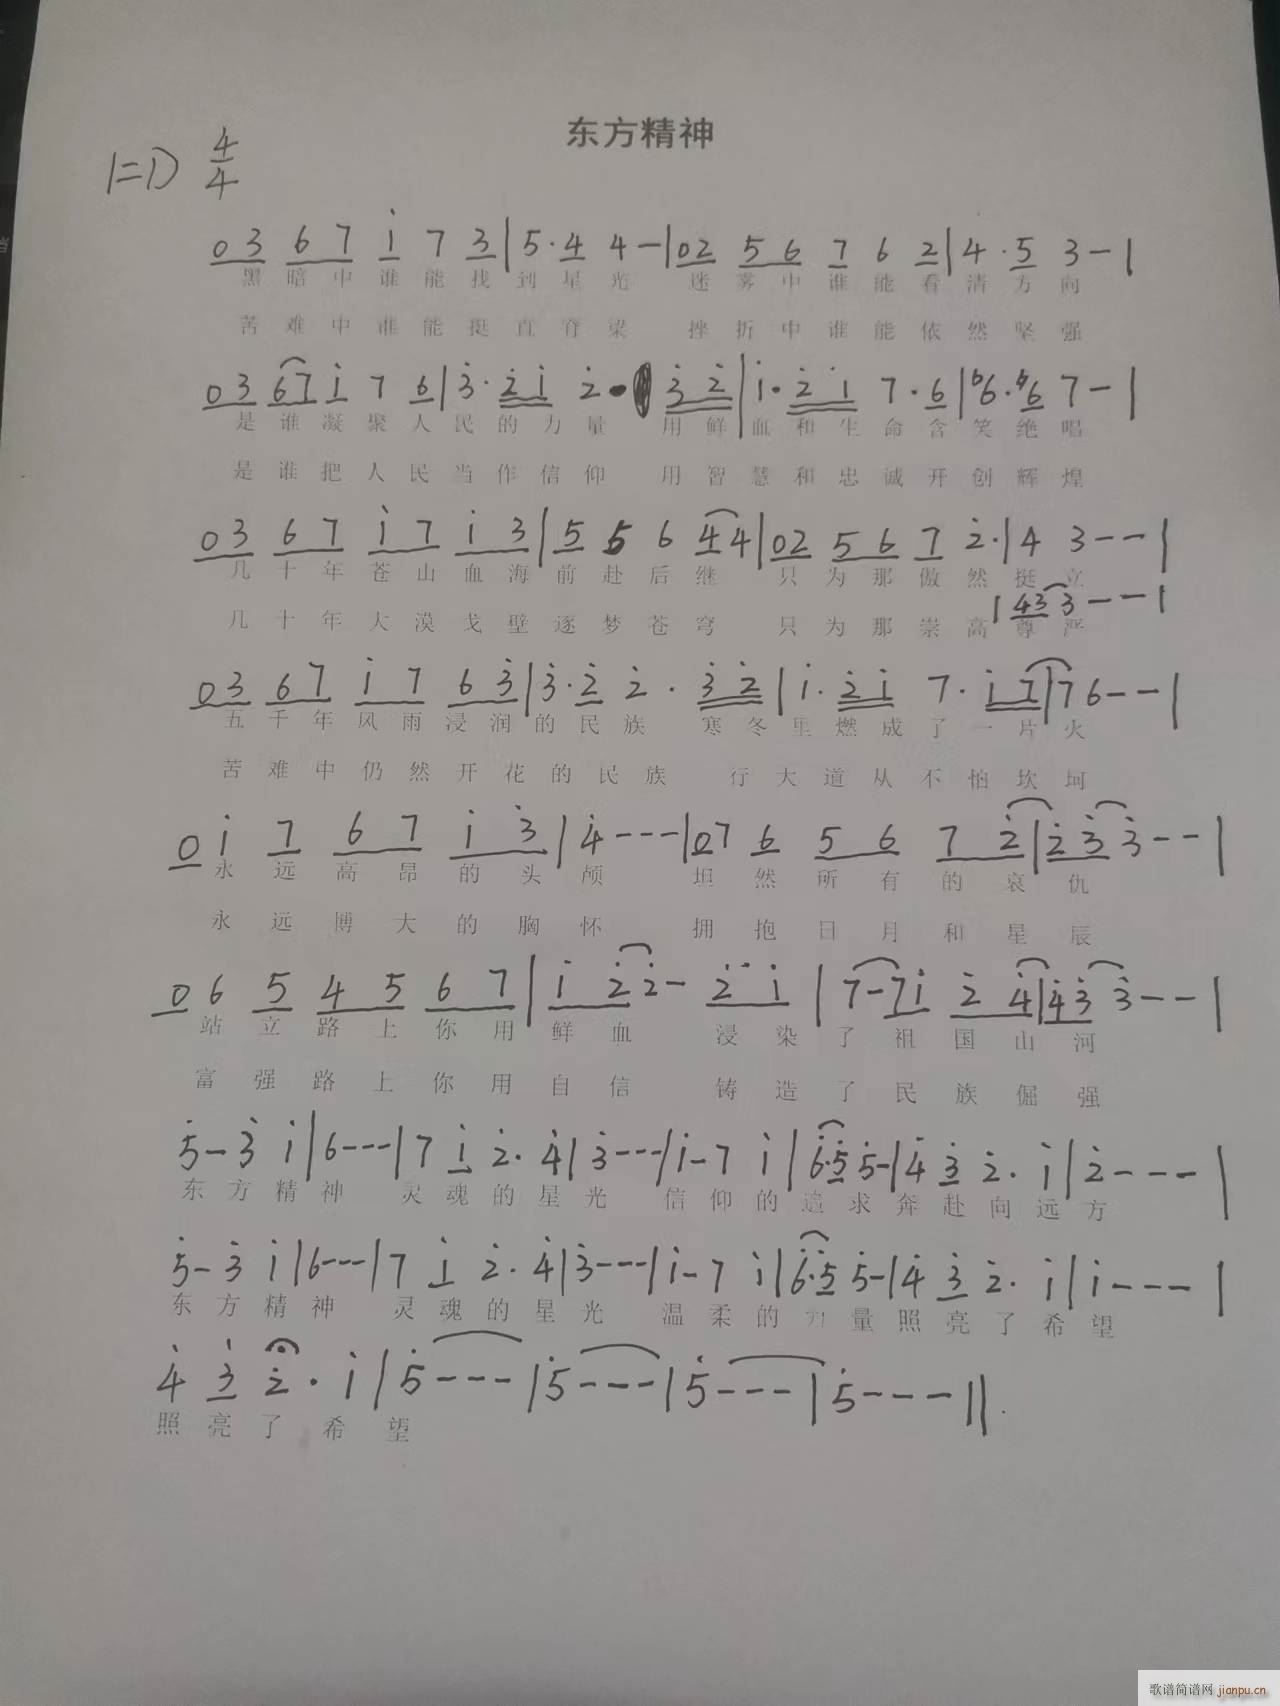 东方精神
1=D 4/4
0 3 6 7 i 7 3 | 5 · 4 4 — | 0 2 5 6 7 6 2 | 4 · 5 3 — |
黑暗中谁能找到星光 迷雾中谁能看清方向
苦难中谁能挺直脊梁 挫折中谁能依然坚强
0 3 6 7 i 7 6 | 3 · 2 i 2 · 3 2 | i · 2 i 7 · 6 | b6 · b6 7 — |
是谁凝聚人民的力量 用鲜血和生命含笑绝唱
是谁把人民当作信仰 用智慧和忠诚开创辉煌
0 3 6 7 i 7 i 3 | 5 5 6 4 4 | 0 2 5 6 7 2 · | 4 3 - - |
几十年苍山血海前赴后继 只为那傲然挺立
| 4 3 3 - - |
几十年大漠戈壁逐梦苍穹 只为那崇高尊严
0 3 6 7 i 7 6 3 | 3 · 2 2 · 3 2 | i · 2 i 7 · i 7 | 7 6 - - |
五千年风雨浸润的民族 寒冬里燃成了一片火
苦难中仍然开花的民族 行大道从不怕坎坷
0 i 7 6 7 i 3 | 4 - - - | 0 7 6 5 6 7 2 | 2 3 3 - - |
永远高昂的头颅 坦然所有的哀仇
永远博大的胸怀 拥抱日月和星辰
0 6 5 4 5 6 7 | i 2 2 - 2 i | 7 - 7 i 2 4 | 4 3 3 - - |
站立路上你用鲜血 浸染了祖国山河
富强路上你用自信 铸造了民族倔强
5 - 3 i | 6 - - - | 7 i 2 · 4 | 3 - - - | i - 7 i | 6 · 5 5 - | 4 3 2 · i | 2 - - - |
东方精神 灵魂的星光 信仰的追求奔赴向远方
5 - 3 i | 6 - - - | 7 i 2 · 4 | 3 - - - | i - 7 i | 6 · 5 5 - | 4 3 2 · i | i - - - |
东方精神 灵魂的星光 温柔的力量照亮了希望
4 3 2 · i | 5 - - - | 5 - - - | 5 - - - | 5 - - - ||
照亮了希望
歌谱简谱网 jianpu.cn